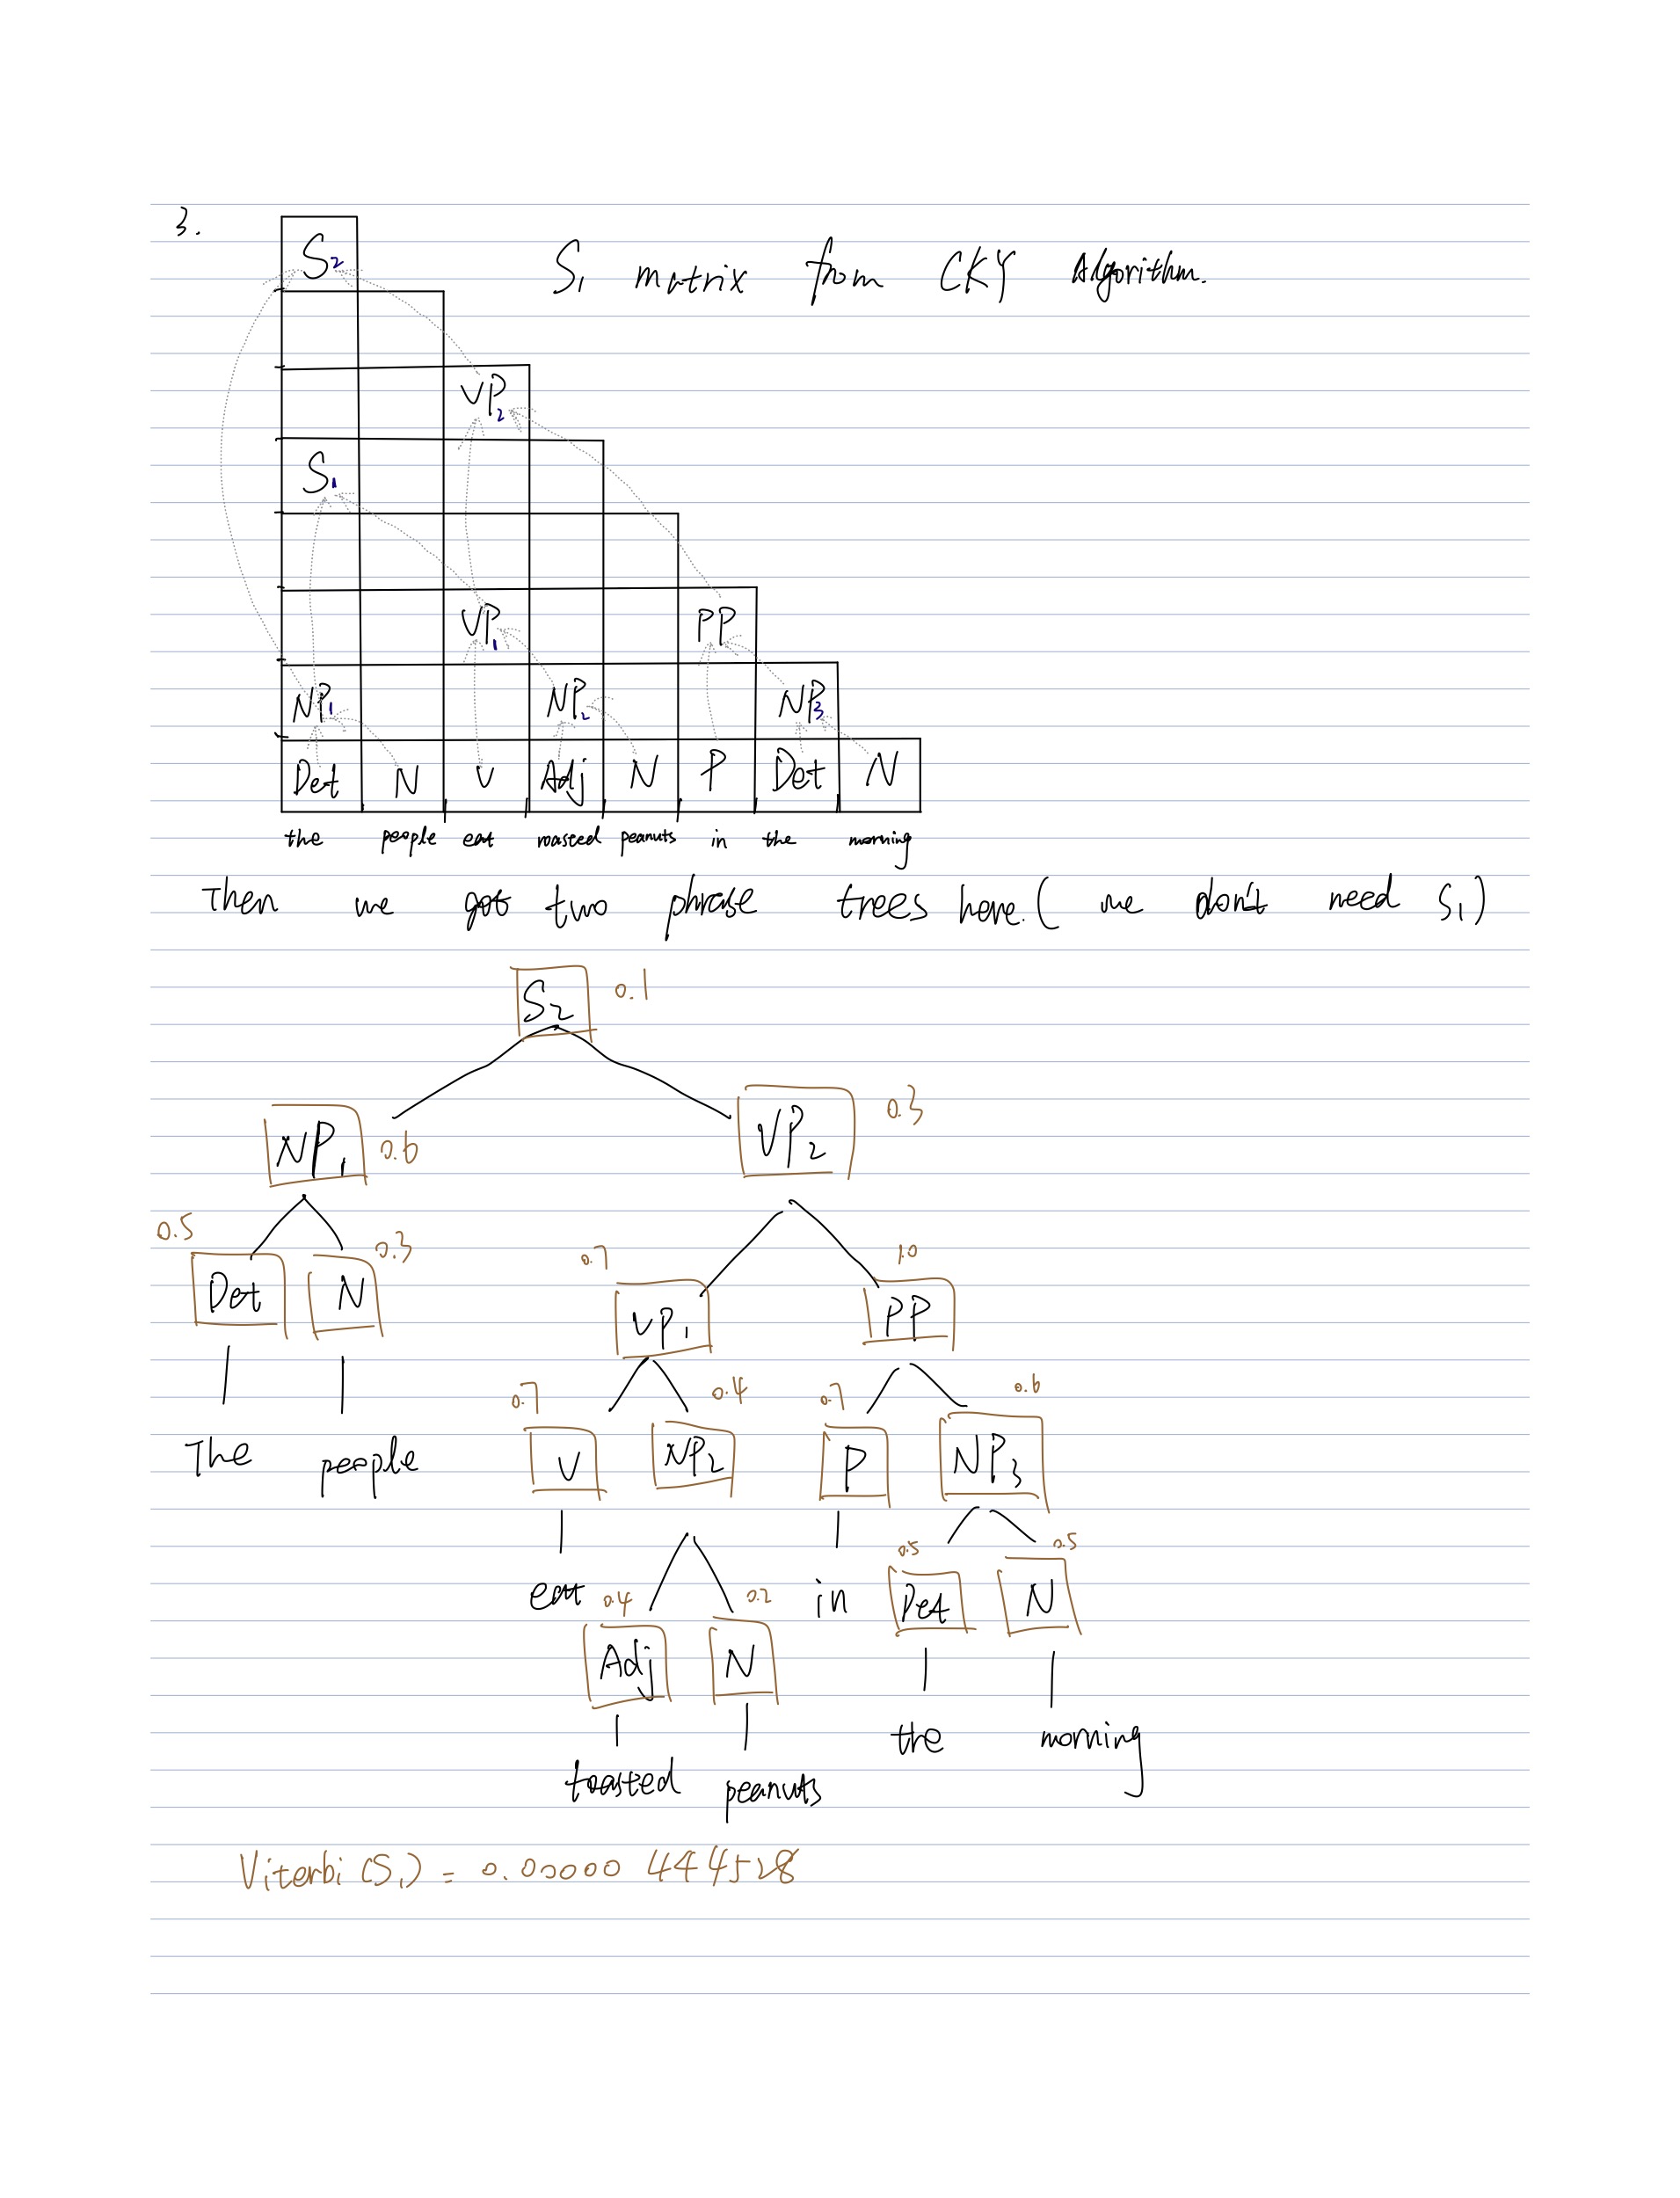 3.
S₂
S₁ matrix from CKY Algorithm.
VP₂
S₁
VP₁ PP
NP₁ NP₂ NP₃
Det N V Adj N P Det N
the people eat roasted peanuts in the morning
Then we got two phrase trees here. ( we don't need S₁)
S₂ 0.1
NP₁ 0.6 VP₂ 0.3
0.5 0.3 0.7 1.0
Det N VP₁ PP
0.7 0.4 0.7 0.6
The people V NP₂ P NP₃
0.5 0.5
eat 0.4 0.2 in Det N
Adj N
the morning
toasted peanuts
Viterbi (S₁) = 0.00000 444528